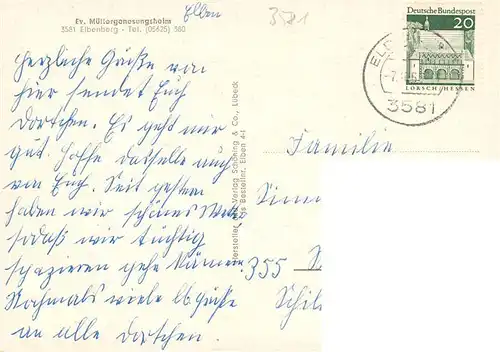 Ev. Müttergenesungsheim
3581 Elbenberg - Tel. (05625) 580
Elben
3581
Deutsche Bundespost
20
LORSCH/HESSEN
3581
Herzliche Grüße von
hier sendet Euch
Dortchen. Es geht mir
gut. Hoffe dasselbe auch
von Euch. Seit gestern
haben wir schönes
sodaß wir tüchtig
spazieren gehn
Nochmals viele lb. Grüße
an alle Dortchen.
Hersteller Verlag Schöning & Co., Lübeck
Bestellnr. Elben 4-1
Familie
355